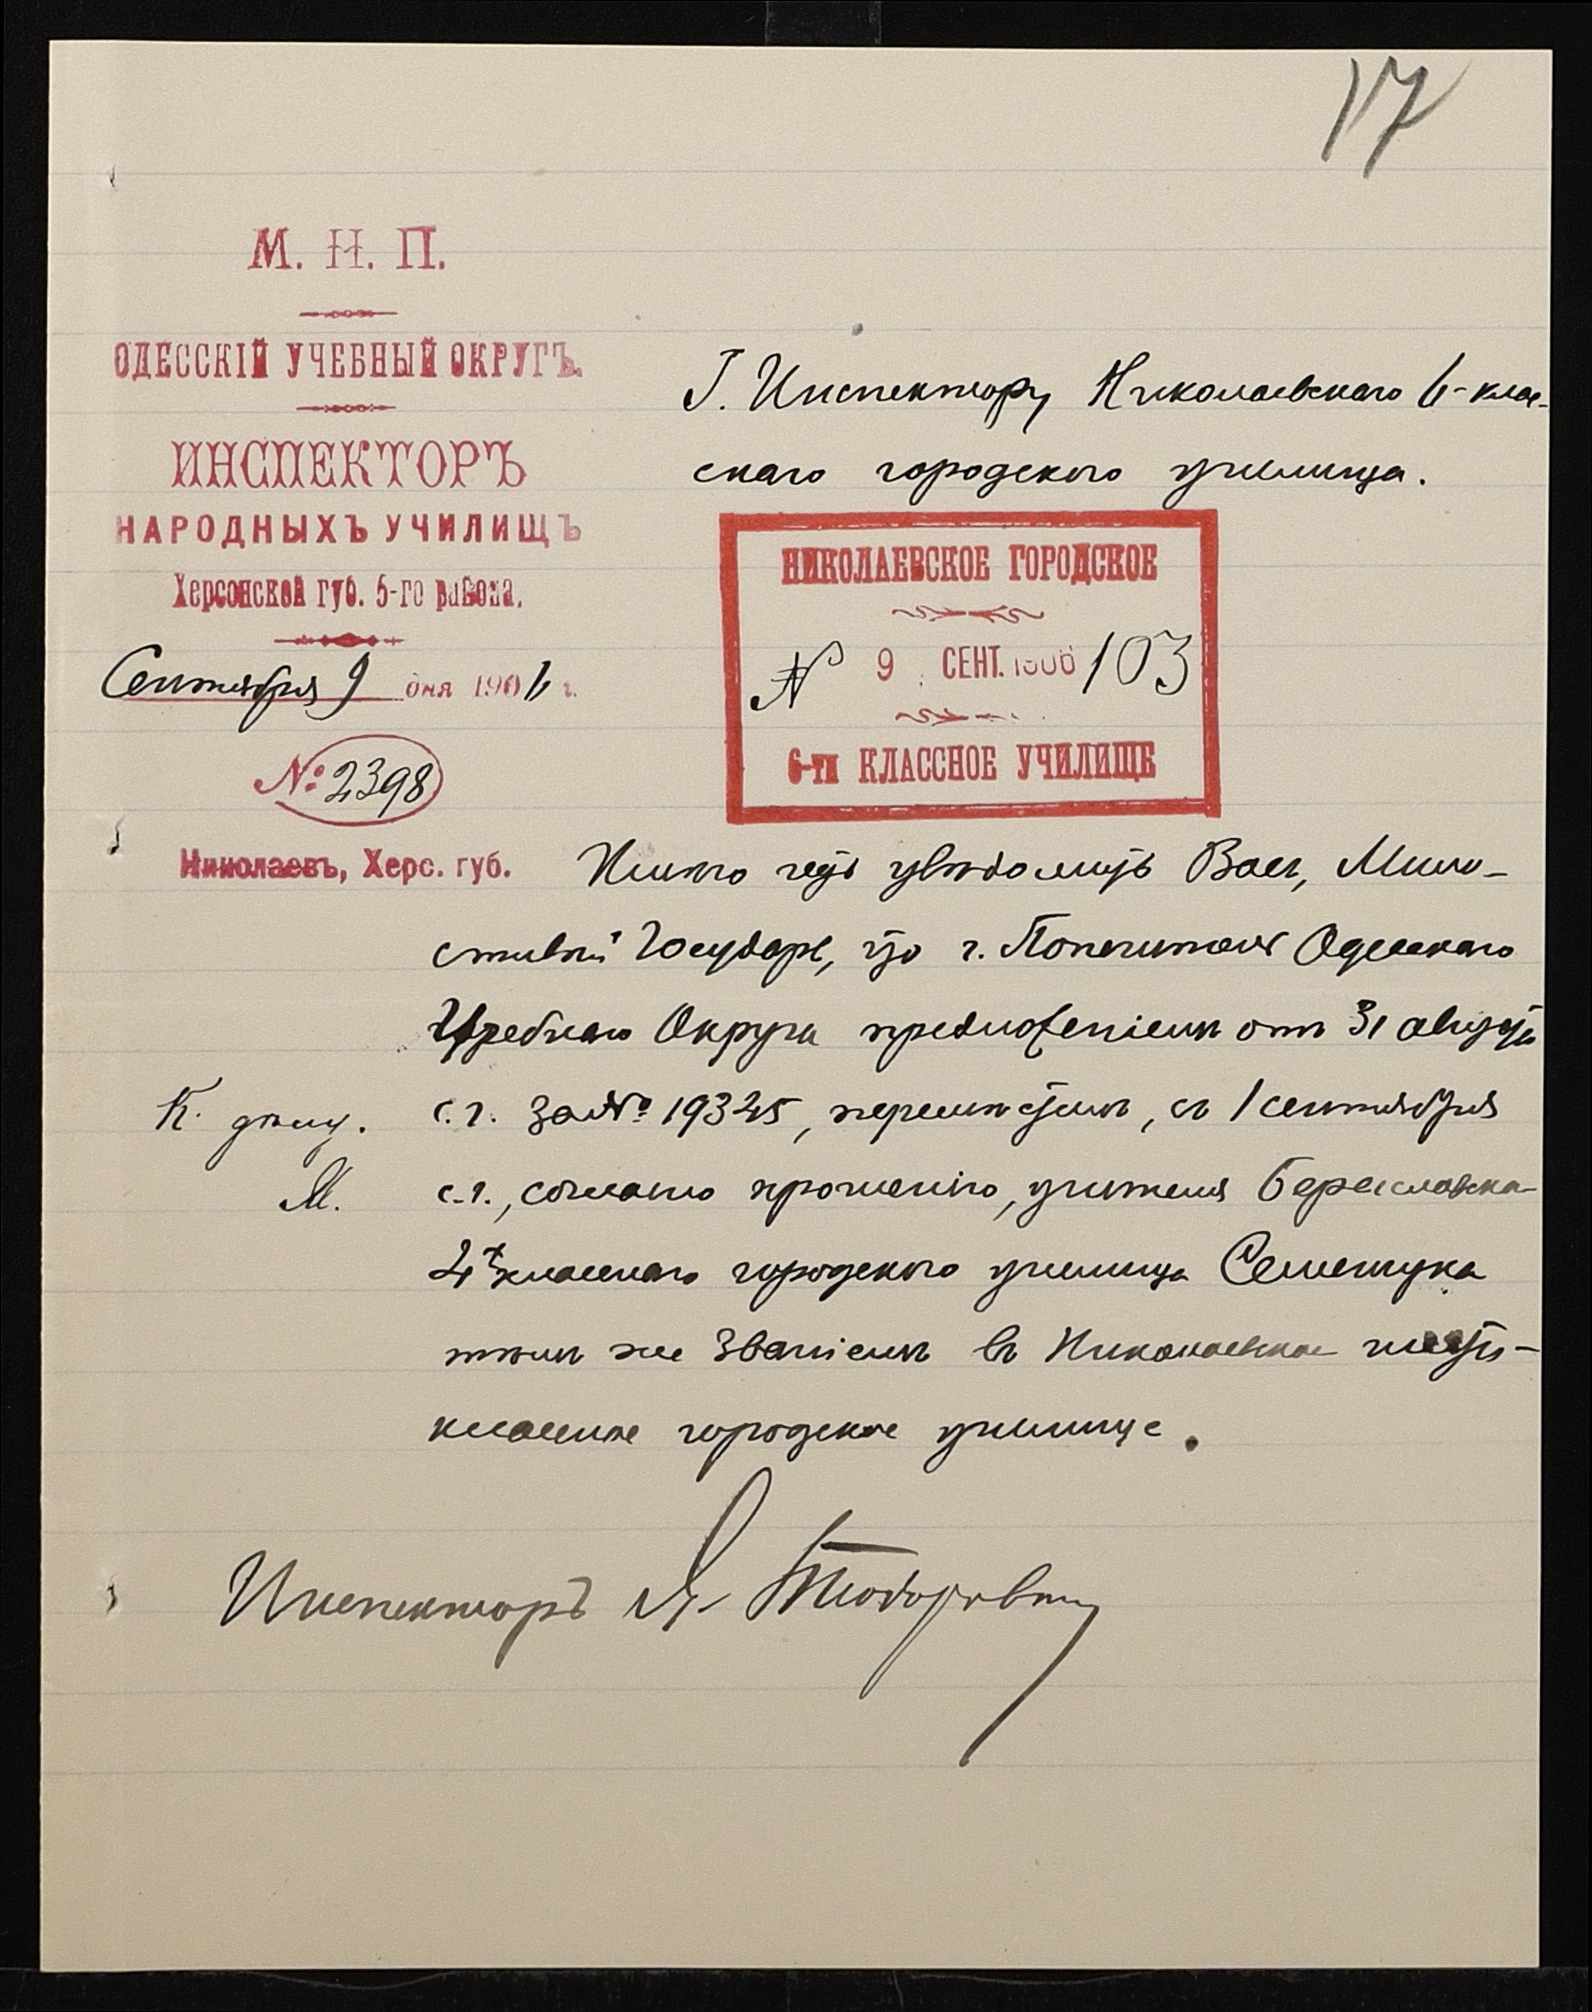 17
М. Н. П.
ОДЕССКІЙ УЧЕБНЫЙ ОКРУГЪ.
ИНСПЕКТОРЪ
НАРОДНЫХЪ УЧИЛИЩЪ
Херсонской губ. 5-го района.
Сентября 9 дня 1906 г.
№ 2398
Николаевъ, Херс. губ.
Г. Инспектору Николаевскаго 6-клас-
снаго городского училища.
НИКОЛАЕВСКОЕ ГОРОДСКОЕ
№ 9 СЕНТ. 1906 103
6-ти КЛАССНОЕ УЧИЛИЩЕ
Имѣю честь увѣдомить Васъ, Мило-
стивый Государь, что г. Попечитель Одесскаго
Учебнаго Округа предложеніемъ отъ 31 августа
с.г. за № 19345, перемѣстилъ, съ 1 сентября
с.г., согласно прошенію, учителя Бериславска-
4х класснаго городского училища Семещука
тѣмъ же званіемъ въ Николаевское шести-
классное городское училище.
К дѣлу.
М.
Инспекторъ Я. Тодоровичъ